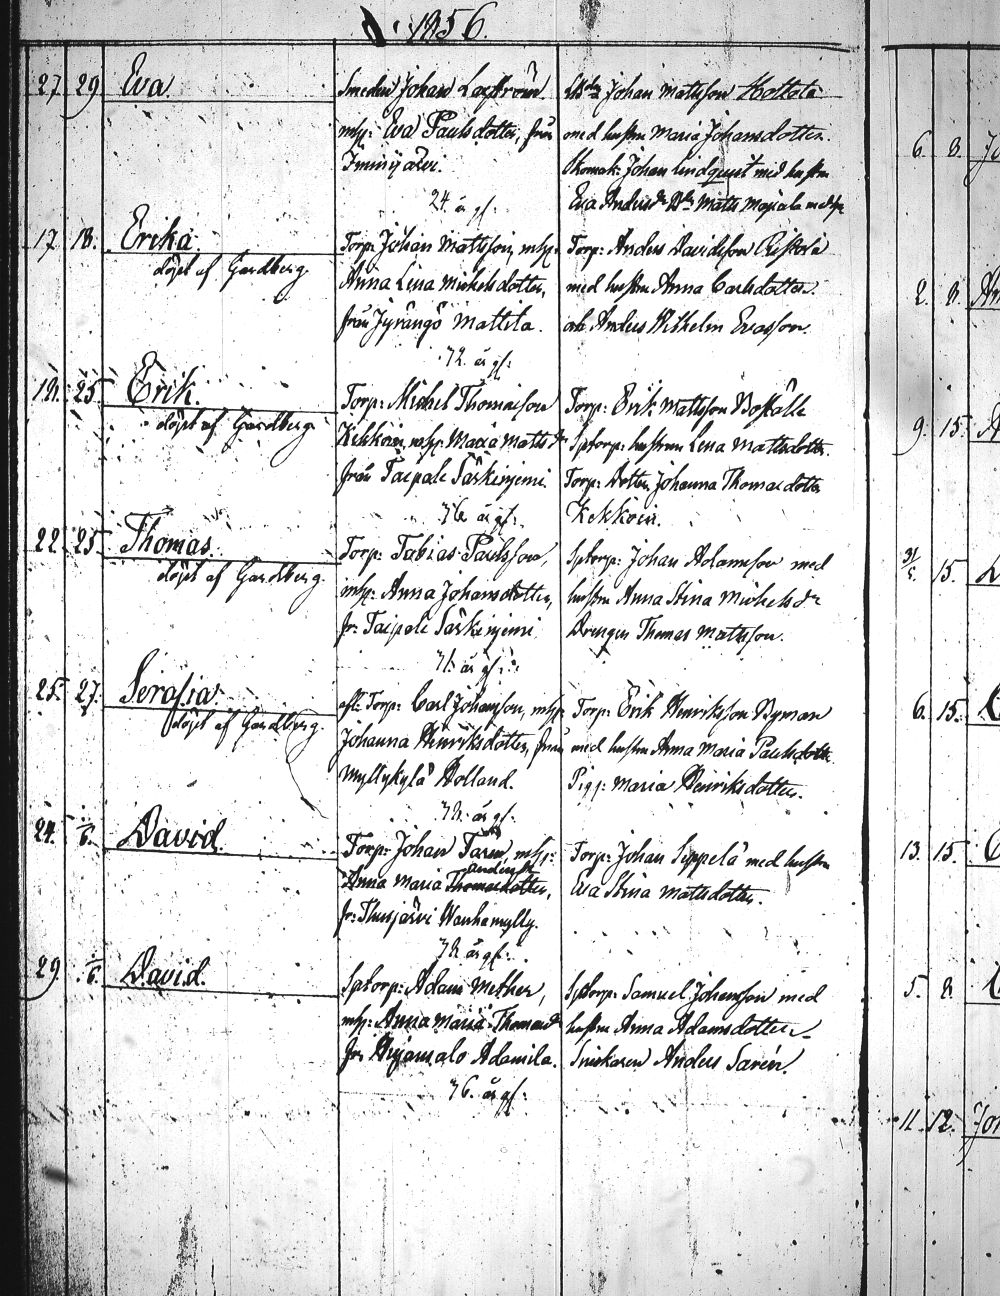 1856.
27 29 Eva
Smeden Johan Laxström
mh: Eva Paulsdotter, från
Iminjärvi.
24. år gl:
Johan Mattsson Hottola
med hustru Maria Johansdotter.
Skomak: Johan Lindquist med hustru
Eva Matts Mariala
17. 18. Erika.
döpt af Gardberg.
Torp: Johan Mattsson, mh:
Anna Lena Michelsdotter,
från Jyrängö Mattila.
42. år gl:
Torp: Anders Davidsson Ristola
med hustru Anna Carlsdotter.
och Anders Wilhelm Evasson.
25. Erik.
döpt af Gardberg.
Torp: Michel Thomasson
Kekkoin, mh: Maria Matts dr
från Taipale Särkiniemi
år gl:
Torp: Erik Mattsson
Sptorp: hustrun Lena Mattsdotter
Torp: Dotter Johanna Thomasdotter
Kekkoin.
22. 25. Thomas.
döpt af Gardberg.
Torp: Tobias Paulsson,
mh: Anna Johansdotter,
fr: Taipale Särkiniemi
år gl:
Sptorp: Johan Adamsson med
hustru Anna Stina Michels dr
Drengen Thomas Mattsson.
25. 27. Serafia.
döpt af Gardberg.
Torp: Carl Johansson, mh:
Johanna Henriksdotter, från
Myllykylä Holland.
år gl:
Torp: Erik Henriksson Nyman
med hustru Anna Maria Paulsdotter
Pig: Maria Henriksdotter.
24. 1/6. David.
Torp: Johan Taren, mh:
Anders
Anna Maria Thomasdotter,
fr: Thusjärvi Wanhamylly.
år gl:
Torp: Johan Seppelä med hustru
Eva Stina Mattsdotter.
29 1/6. David.
Sptorp: Adam Mether,
mh: Anna Maria Thomasdr
fr: Hirjansalo Adamila.
46. år gl:
Sptorp: Samuel Johansson med
hustru Anna Adamsdotter
Snickaren Anders Saren.
6. 8. Jo
2. 8. An
9. 15. A
31/5. 15. D
6. 15. C
13. 15. C
5. 8.
11. 12. Joh